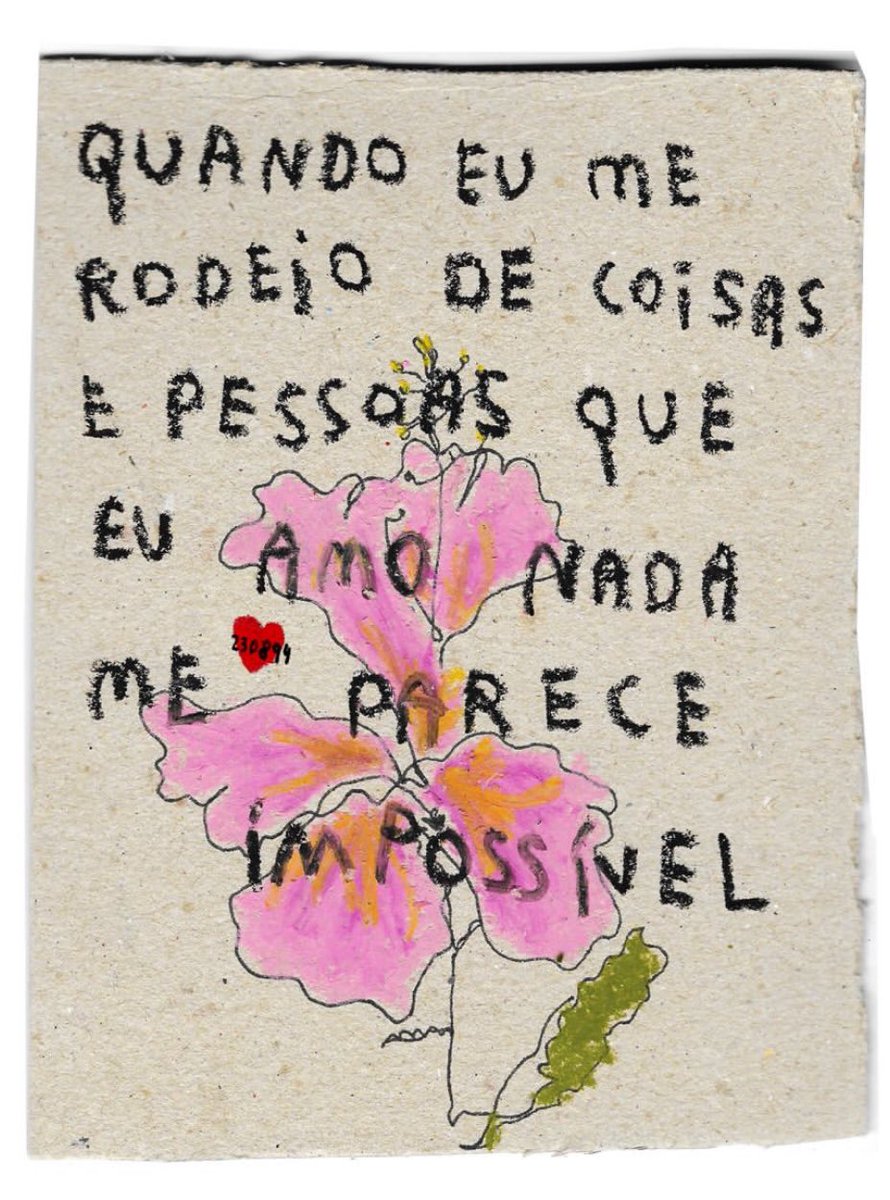 QUANDO EU ME
RODEIO DE COISAS
E PESSOAS QUE
EU AMO NADA
230894
ME PARECE
IMPOSSÍVEL